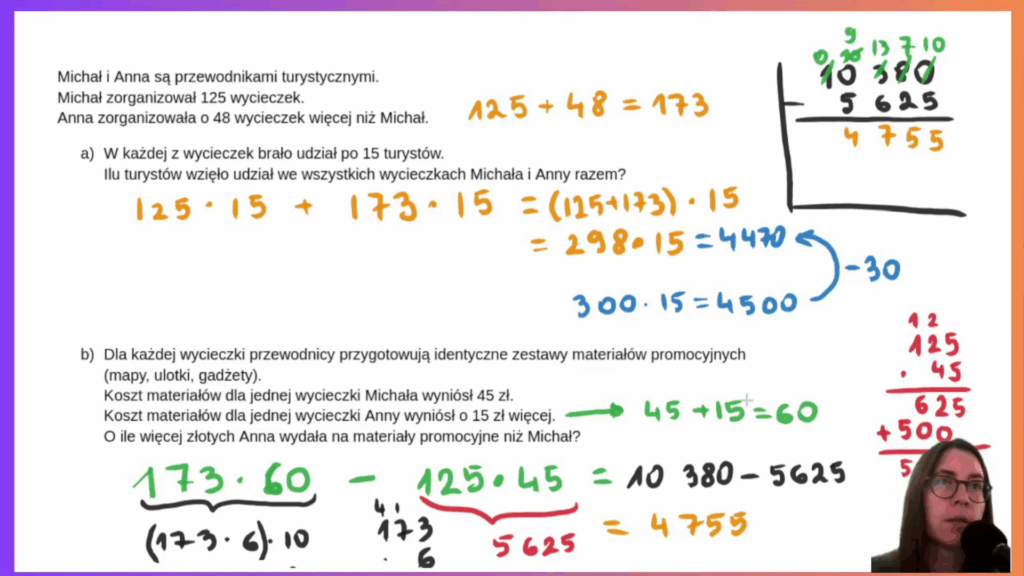 Michał i Anna są przewodnikami turystycznymi.
Michał zorganizował 125 wycieczek.
Anna zorganizowała o 48 wycieczek więcej niż Michał.
125 + 48 = 173
9
0 10 13 7 10
10 380
- 5 625
4 755
a) W każdej z wycieczek brało udział po 15 turystów.
Ilu turystów wzięło udział we wszystkich wycieczkach Michała i Anny razem?
125 · 15 + 173 · 15 = (125+173) · 15
= 298 · 15 = 4470
- 30
300 · 15 = 4500
b) Dla każdej wycieczki przewodnicy przygotowują identyczne zestawy materiałów promocyjnych
(mapy, ulotki, gadżety).
Koszt materiałów dla jednej wycieczki Michała wyniósł 45 zł.
Koszt materiałów dla jednej wycieczki Anny wyniósł o 15 zł więcej. → 45 + 15 = 60
O ile więcej złotych Anna wydała na materiały promocyjne niż Michał?
1 2
125
· 45
625
+ 500
5
173 · 60 - 125 · 45 = 10 380 - 5625
(173 · 6) · 10
4 1
173
· 6
5625
= 4 755